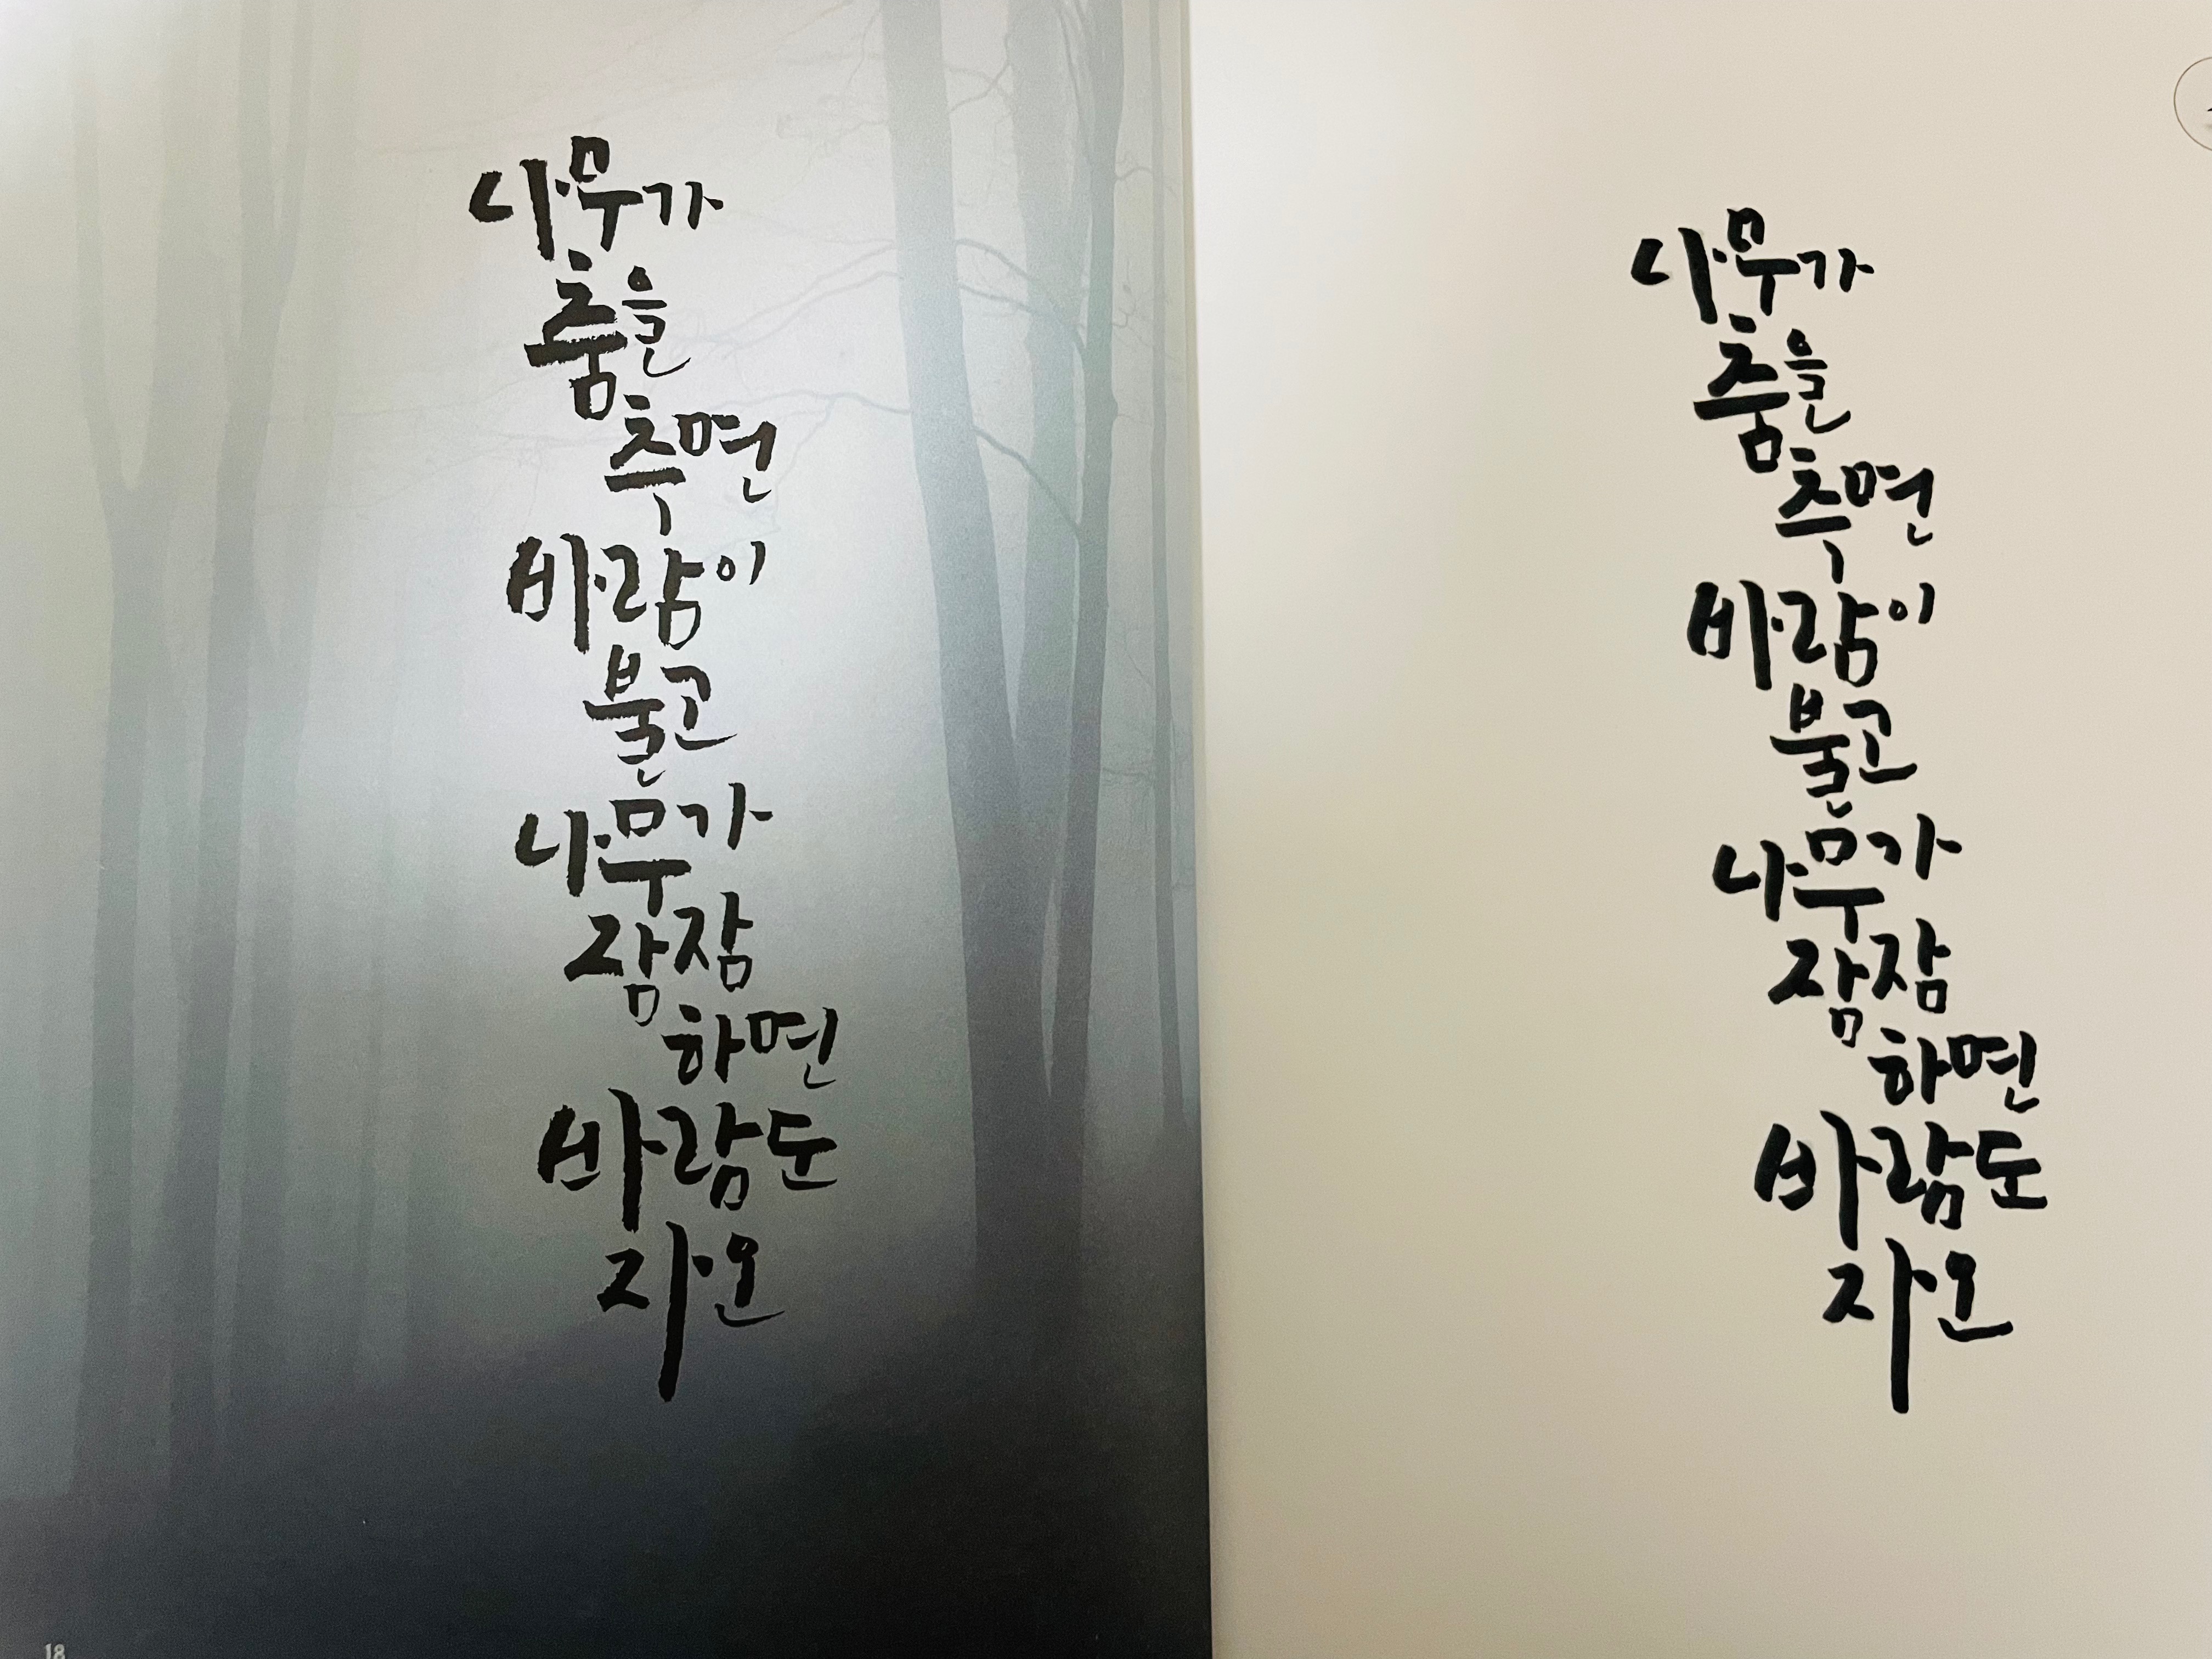 나무가
춤을
추면
바람이
불고
나무가
잠잠
하면
바람도
자오
18
나무가
춤을
추면
바람이
불고
나무가
잠잠
하면
바람도
자오